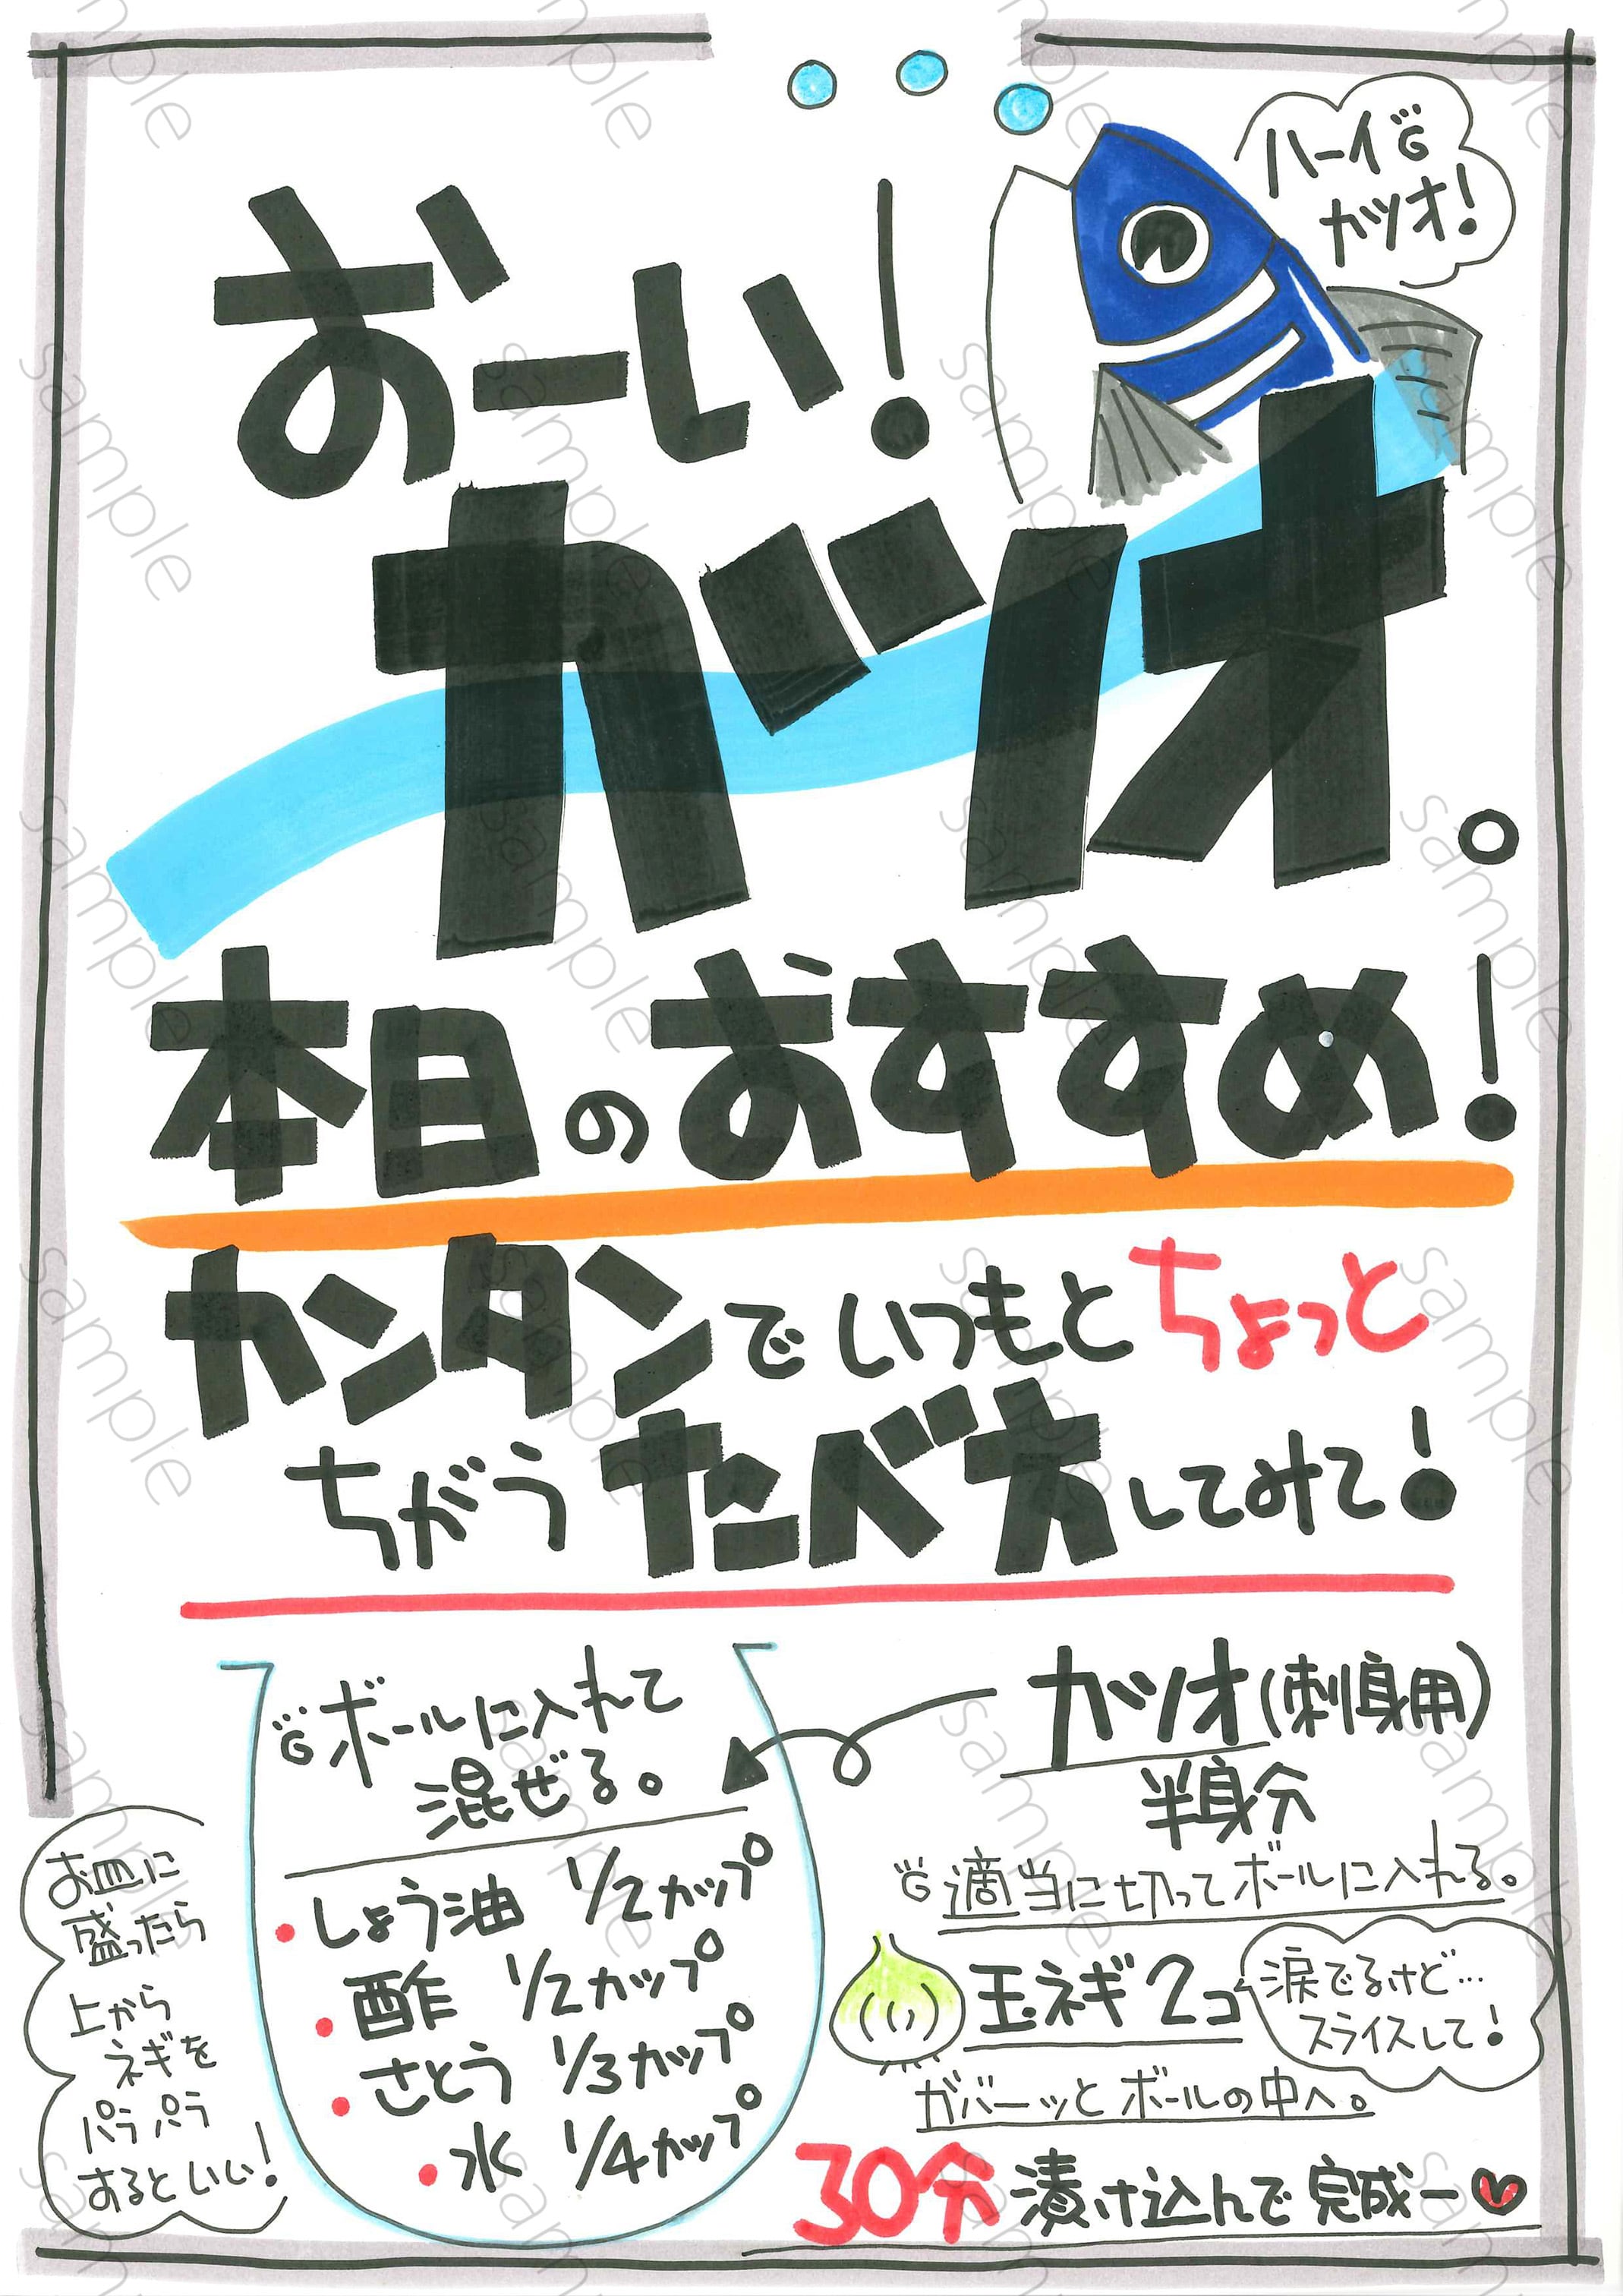 ハーイ
カツオ!
おーい!
カツオ。
本日のおすすめ!
カンタンでいつもとちょっと
ちがうたべ方してみて!
ボールに入れて
混ぜる。
しょう油 1/2カップ
酢 1/2カップ
さとう 1/3カップ
水 1/4カップ
カツオ(刺身用)
半身分
適当に切ってボールに入れる。
玉ネギ2コ
涙でるけど…
スライスして!
ガバーッとボールの中へ。
30分漬け込んで完成ー
お皿に
盛ったら
上から
ネギを
パラパラ
するといい!
sample